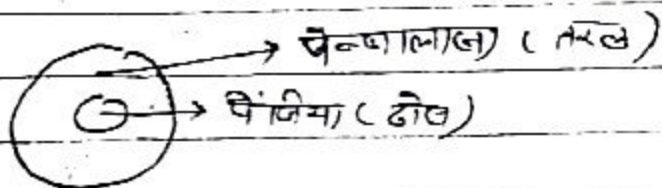 पेन्जालाजा (तरल)
पेंजिया (ठोस)